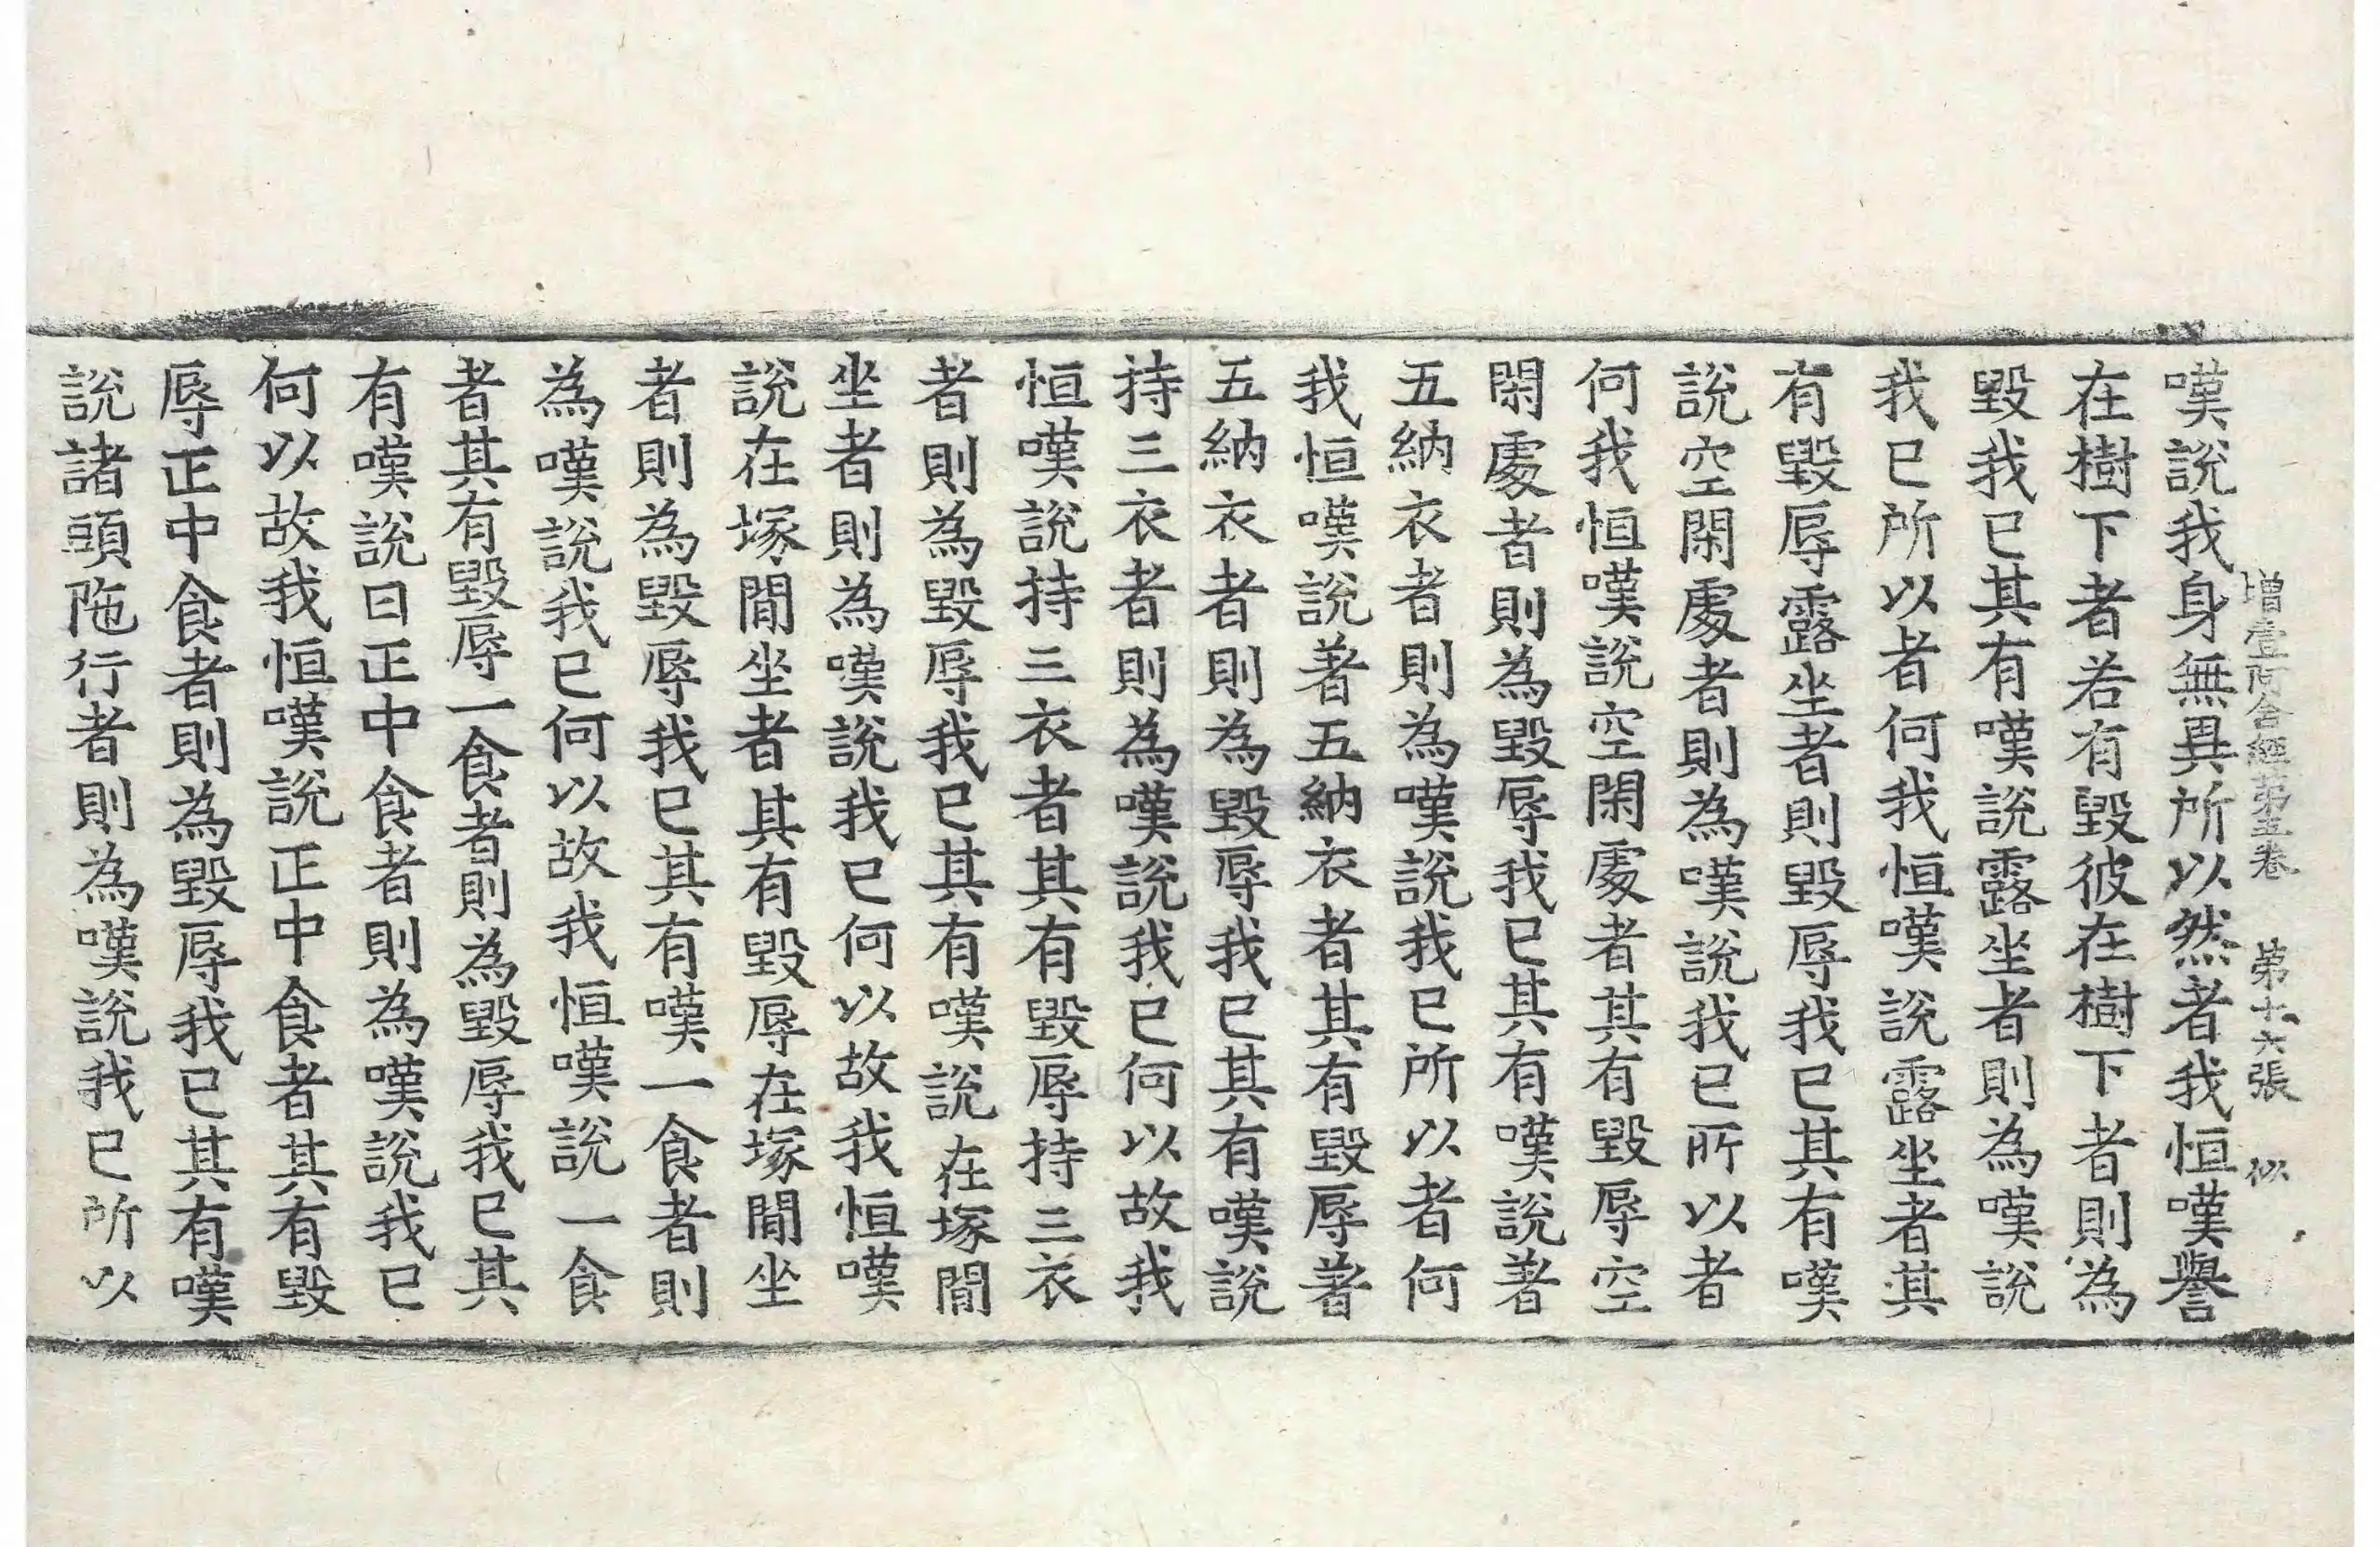 增壹阿含經第五卷　第十六張　似
嘆說我身無異所以然者我恒嘆譽
在樹下者若有毀彼在樹下者則為
毀我已其有嘆說露坐者則為嘆說
我已所以者何我恒嘆說露坐者其
有毀辱露坐者則毀辱我已其有嘆
說空閑處者則為嘆說我已所以者
何我恒嘆說空閑處者其有毀辱空
閑處者則為毀辱我已其有嘆說著
五納衣者則為嘆說我已所以者何
我恒嘆說著五納衣者其有毀辱著
五納衣者則為毀辱我已其有嘆說
持三衣者則為嘆說我已何以故我
恒嘆說持三衣者其有毀辱持三衣
者則為毀辱我已其有嘆說在塚間
坐者則為嘆說我已何以故我恒嘆
說在塚間坐者其有毀辱在塚間坐
者則為毀辱我已其有嘆一食者則
為嘆說我已何以故我恒嘆說一食
者其有毀辱一食者則為毀辱我已其
有嘆說日正中食者則為嘆說我已
何以故我恒嘆說正中食者其有毀
辱正中食者則為毀辱我已其有嘆
說諸頭陁行者則為嘆說我已所以